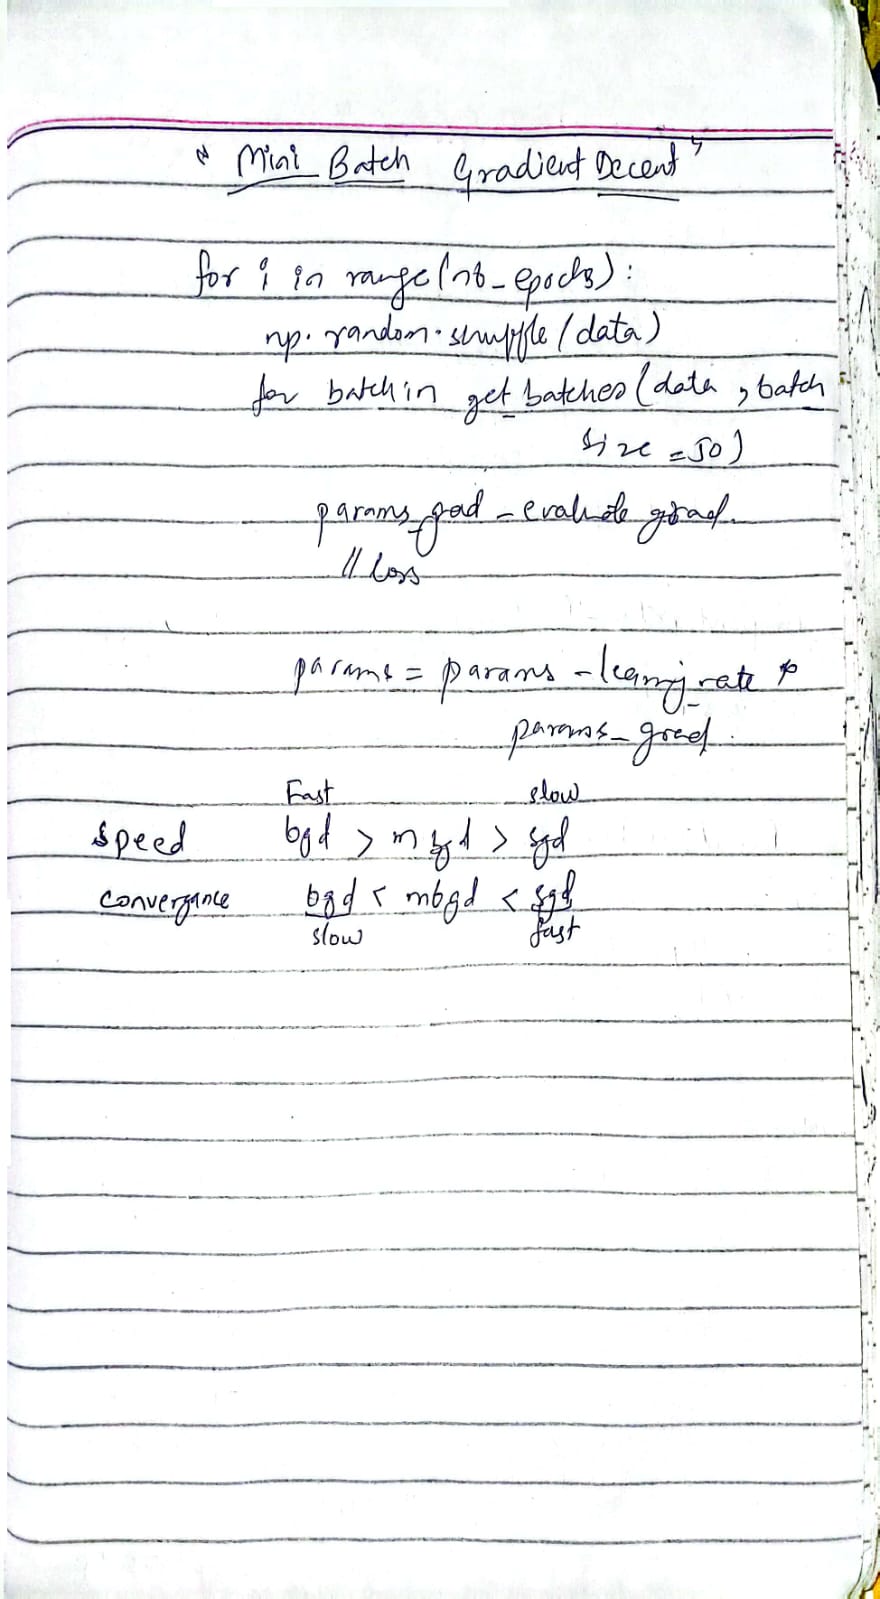 " Mini Batch Gradient Decent "
for i in range(nb_epochs):
np.random.shuffle(data)
for batch in get_batches(data, batch
size = 50)
params_grad - evaluate grad.
// loss
params = params - learning_rate *
params_grad.
Fast slow
Speed bgd > mbgd > sgd
convergance bgd < mbgd < sgd
slow fast